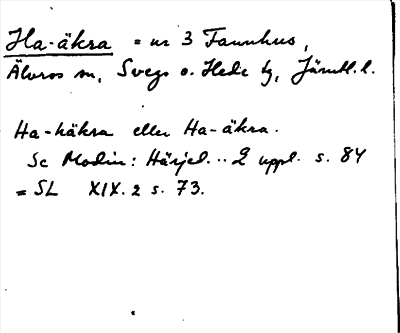 Ha-äkra = nr 3 Fannhus,
Älvros sn, Svegs o. Hede tg, Jämtl. l.
Ha-häkra eller Ha-äkra.
Se Modin: Härjed... 2 uppl. s. 84
= SL XIX. 2 s. 73.